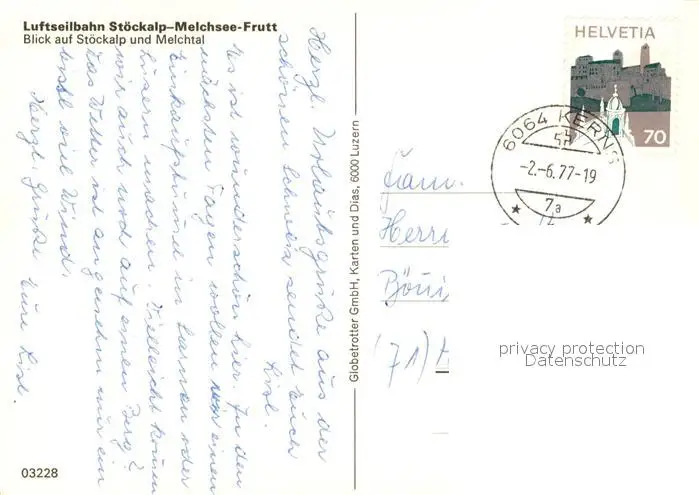 Luftseilbahn Stöckalp–Melchsee-Frutt
Blick auf Stöckalp und Melchtal
Herzl. Urlaubsgrüße aus der
schönen Schweiz sendet Euch
Lisl.
Es ist wunderschön hier. In den
nächsten Tagen wollen wir einen
Einkaufsbummel in Sarnen oder
Luzern machen. Vielleicht können
wir auch noch auf einen Berg?
Das Wetter ist angenehm nur ein
bissl viel Wind.
Herzl. Grüße Eure Lisl.
03228
Globetrotter GmbH, Karten und Dias, 6000 Luzern
HELVETIA
70
6064 KERNS
-2.-6.77-19
7a
Fam.
Herri
(71)
privacy protection
Datenschutz